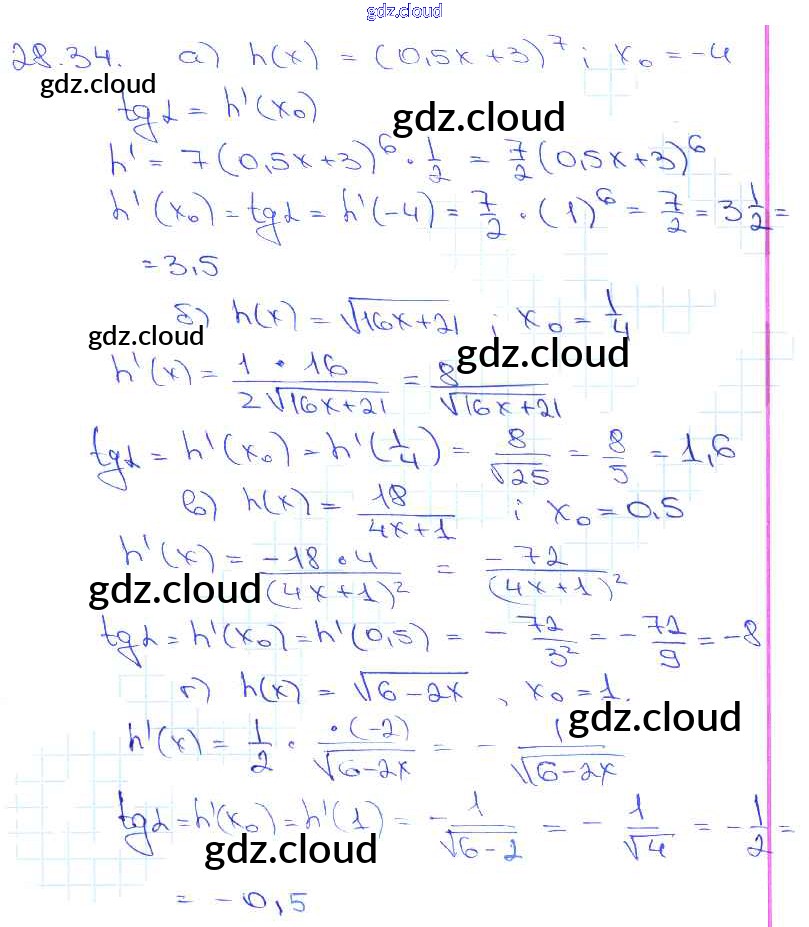 gdz.cloud
28.34. а) h(x) = (0,5x+3)^7 ; x₀ = -4
gdz.cloud
tg α = h'(x₀) gdz.cloud
h' = 7(0,5x+3)^6 · 1/2 = 7/2 (0,5x+3)^6
h'(x₀) = tg α = h'(-4) = 7/2 · (1)^6 = 7/2 = 3 1/2 =
= 3,5
б) h(x) = √(16x+21) ; x₀ = 1/4
gdz.cloud gdz.cloud
h'(x) = (1 · 16)/(2√(16x+21)) = 8/√(16x+21)
tg α = h'(x₀) = h'(1/4) = 8/√25 = 8/5 = 1,6
в) h(x) = 18/(4x+1) ; x₀ = 0,5
h'(x) = (-18 · 4)/(4x+1)² = -72/(4x+1)²
gdz.cloud gdz.cloud
tg α = h'(x₀) = h'(0,5) = - 72/3² = - 72/9 = -8
г) h(x) = √(6-2x) , x₀ = 1.
gdz.cloud
h'(x) = 1/2 · (·(-2))/√(6-2x) = - 1/√(6-2x)
tg α = h'(x₀) = h'(1) = - 1/√(6-2) = - 1/√4 = - 1/2 =
gdz.cloud gdz.cloud
= -0,5